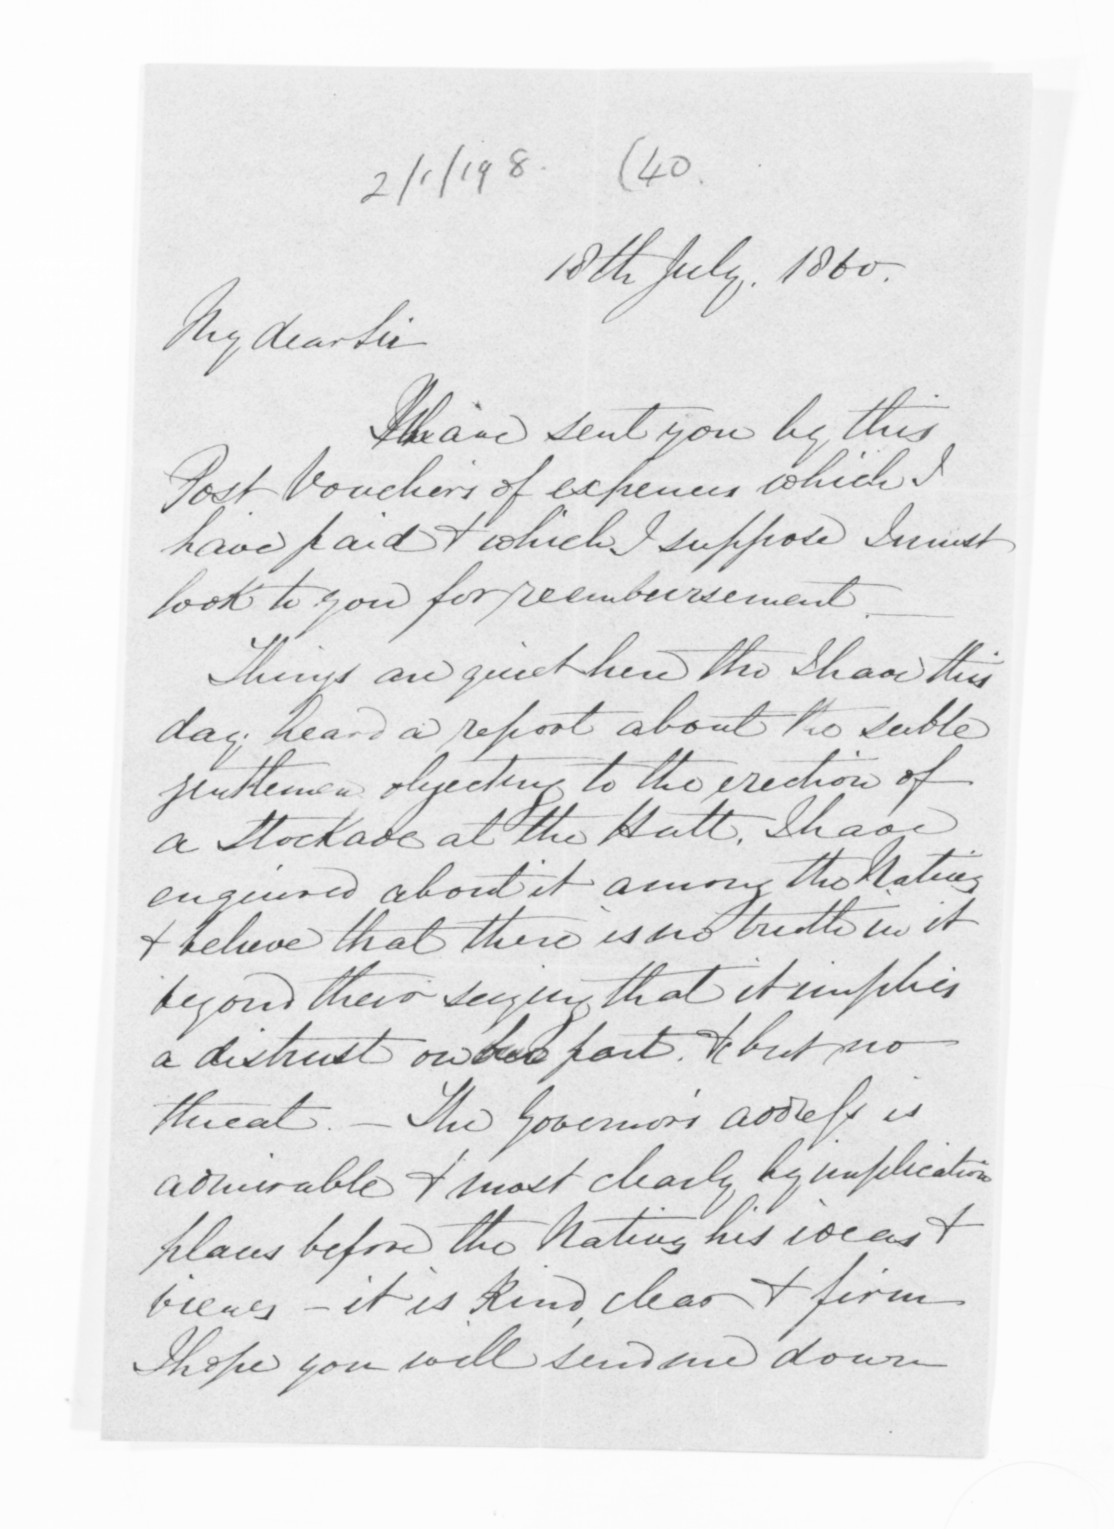 2/1/198. (40.
18th July, 1860.
My dear Sir
I have sent you by this
Post Vouchers of expences which I
have paid & which I suppose I must
look to you for reembursement. —
Things are quiet here tho I have this
day heard a report about the
gentlemen objecting to the erection of
a Stockade at the Hutt. I have
enquired about it among the Natives
& believe that there is no truth in it
beyond their saying that it implies
a distrust on our part. & but no
threat. — The Governor's address is
admirable & most clearly by implication
places before the Natives his ideas &
views – it is kind, clear & firm
I hope you will send me down